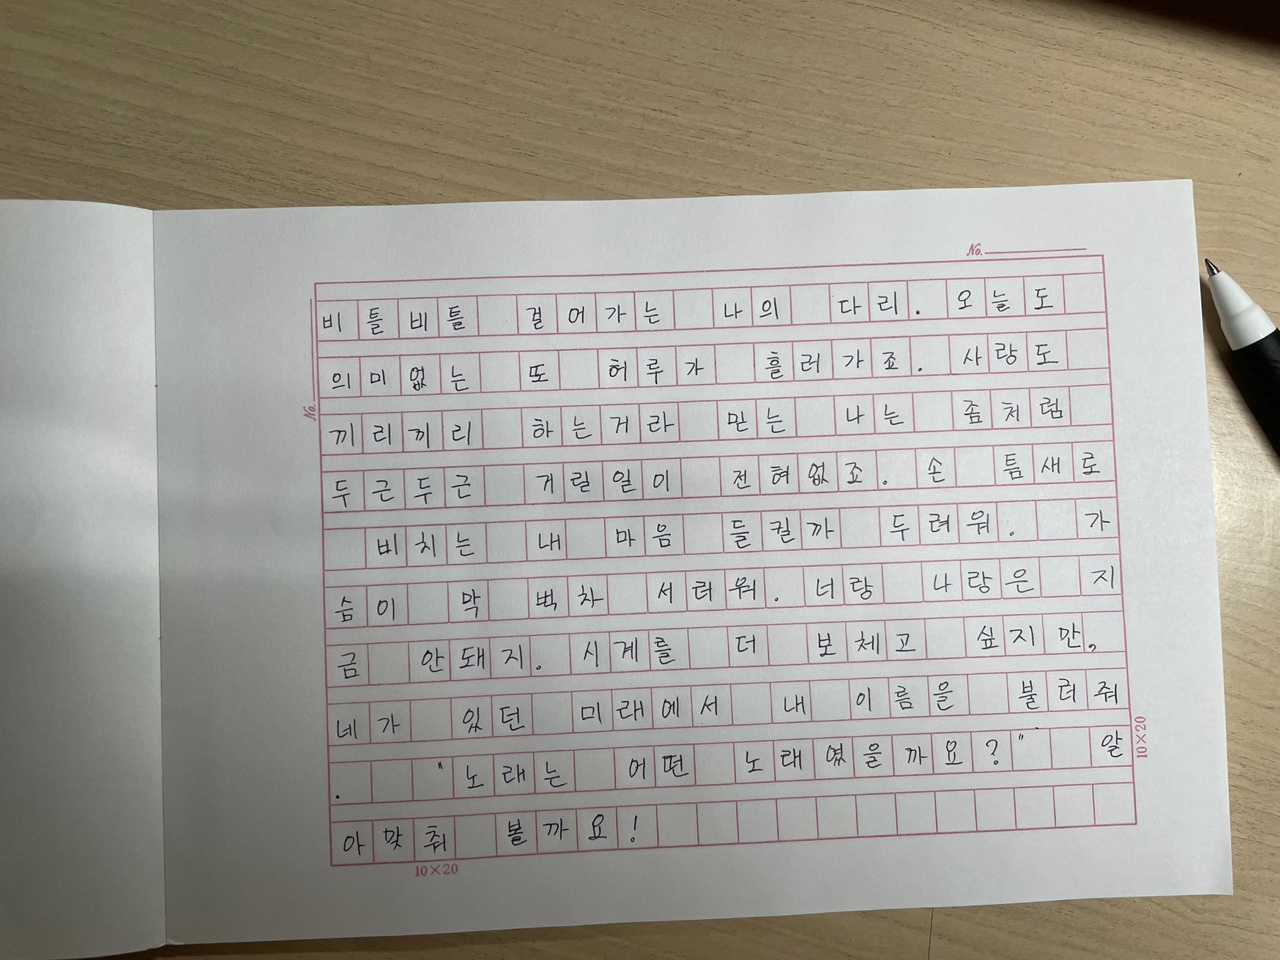 No.
비틀비틀 걸어가는 나의 다리. 오늘도
의미없는 또 허루가 흘러가죠. 사랑도
끼리끼리 하는거라 믿는 나는 좀처럼
두근두근 거릴일이 전혀없죠. 손 틈새로
비치는 내 마음 들킬까 두려워. 가
슴이 막 벅차 서러워. 너랑 나랑은 지
금 안돼지. 시계를 더 보체고 싶지만,
네가 있던 미래에서 내 이름을 불러줘
. "노래는 어떤 노래였을까요?" 알
아맞춰 볼까요!
No.
10×20
10×20